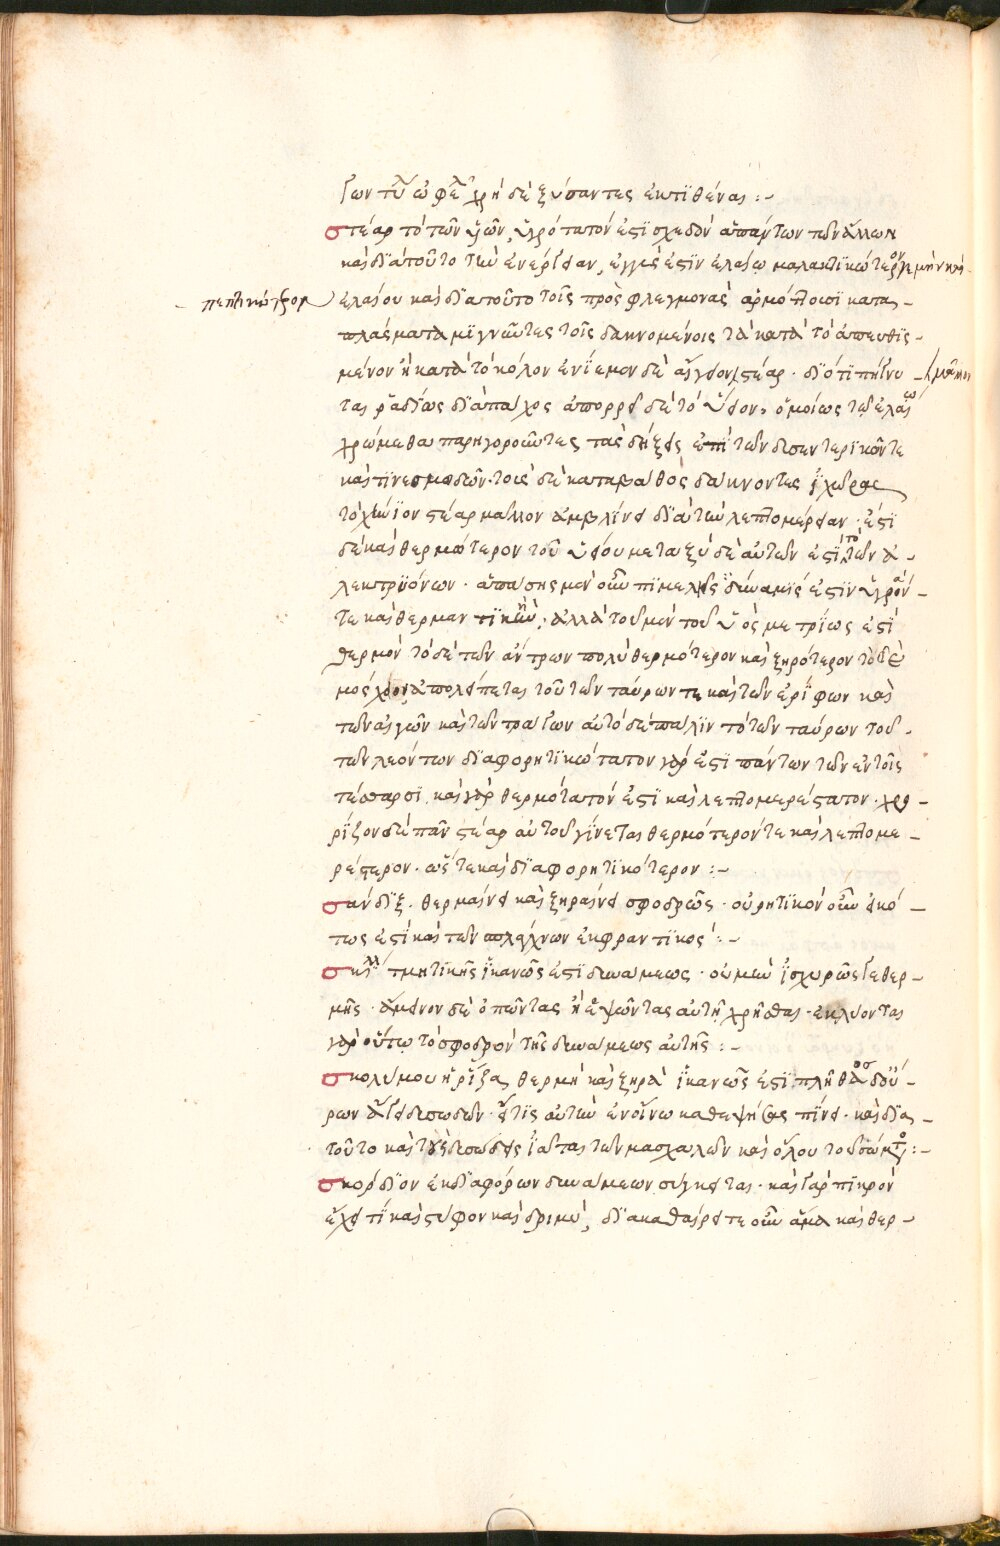 των τὴν ὠφέλ χρὴ δὲ ξύσαντες ἐκτιθέναι :-
στέαρ τὸ τῶν ὑῶν, ὑγρότατόν ἐστι σχεδὸν ἁπάντων τῶν ἄλλων
καὶ διὰ τοῦτο τὴν ἐνέργειαν, ἐγγύς ἐστιν ἐλαίῳ μαλακτικώτερον γε μὴν καὶ
πεπτικώτερον
ἐλαίου καὶ διὰ τοῦτο τοῖς πρὸς φλεγμονὰς ἁρμόττουσι κατα-
πλάσματα μιγνῦντες τοῖς δακνομένοις τὰ κατὰ τὸ ἀπευθυσ-
μένον ἢ κατὰ τὸ κόλον ἐνίεμεν δὲ αἴγειον στέαρ · διότι πήγνυ-
ται ῥᾳδίως διὰ πάχος ἀπορρεῖ δὲ τὸ ὕειον, ὁμοίως τῷ ἐλαίῳ
χρώμεθα παρηγοροῦντες τὰς δήξεις ἐπὶ τῶν δυσεντερικῶν τε
καὶ τηνεσμωδῶν · τοὺς δὲ κατὰ βάθος δάκνοντας ἰχῶρας
τὸ χήνιον στέαρ μᾶλλον ἀμβλύνει διὰ τὴν λεπτομέρειαν · ἔστι
δὲ καὶ θερμότερον τοῦ ὑείου μεταξὺ δὲ αὐτῶν ἐστι τὸ τῶν ἀ-
λεκτρυόνων · ἁπάσης μὲν οὖν πιμελῆς δύναμίς ἐστιν ὑγραίν-
τε καὶ θερμαντικὴ, ἀλλὰ τοῦ μὲν τοῦ ὑὸς μετρίως ἐστὶ
θερμὸν τὸ δὲ τῶν ταύρων πολὺ θερμότερον καὶ ξηρότερον τὸ δὲ
μόσχειον ἀπολείπεται τοῦ τῶν ταύρων τε καὶ τῶν ἐρίφων καὶ
τῶν αἰγῶν καὶ τῶν τράγων αὐτὸ δὲ πάλιν τὸ τῶν ταύρων τοῦ
τῶν λεόντων διαφορητικώτατον γάρ ἐστι πάντων τῶν ἐν τοῖς
τέσσαρσι καὶ γὰρ θερμότατόν ἐστι καὶ λεπτομερέστατον · χρο-
νίζον δὲ πᾶν στέαρ αὐτοῦ γίνεται θερμότερόν τε καὶ λεπτομε-
ρέστερον · ὥστε καὶ διαφορητικότερον :-
σάνδιξ · θερμαίνει καὶ ξηραίνει σφοδρῶς · οὐρητικὸν οὖν εἰκό-
τως ἐστὶ καὶ τῶν σπλάγχνων ἐκφραντικός :-
σκίλλ τμητικῆς ἱκανῶς ἐστι δυνάμεως · οὐ μὴν ἰσχυρῶς γε θερ-
μῆς · ἄμεινον δὲ ὀπῶντας ἢ ἑψῶντας αὐτῇ χρῆσθαι · ἐκλύονται
γὰρ οὕτω τὸ σφοδρὸν τῆς δυνάμεως αὐτῆς :-
σκολύμου ἡ ῥίζα θερμὴ καὶ ξηρὰ ἱκανῶς ἐστι πλῆθος δ οὔ-
ρων ἄγει δυσωδῶν · εἴ τις αὐτὴν ἐν οἴνῳ καθεψήσας πίνει · καὶ διὰ
τοῦτο καὶ τὰς δυσωδίας ἰᾶται τῶν μασχαλῶν καὶ ὅλου τοῦ σώματος :-
σκόρδιον ἐκ διαφόρων δυνάμεων σύγκειται · καὶ γὰρ πικρὸν
ἔχει τι καὶ στύφον καὶ δριμὺ, διακαθαίρει τε οὖν ἅμα καὶ θερ-